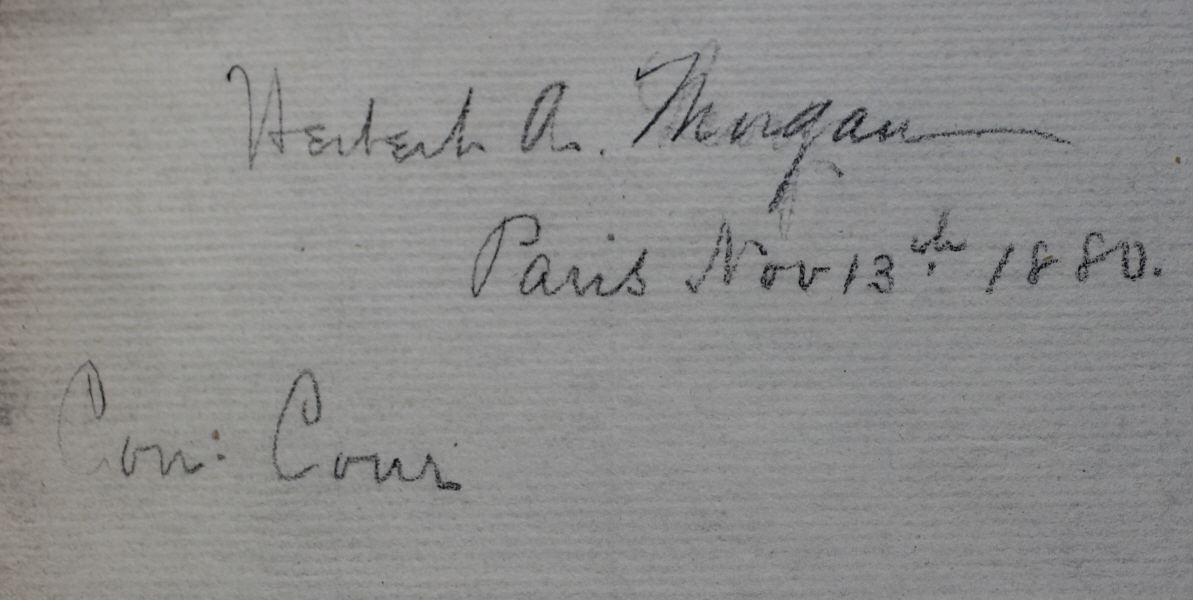 Herbert A. Morgan
Paris Nov 13th 1880.
Con: Cour